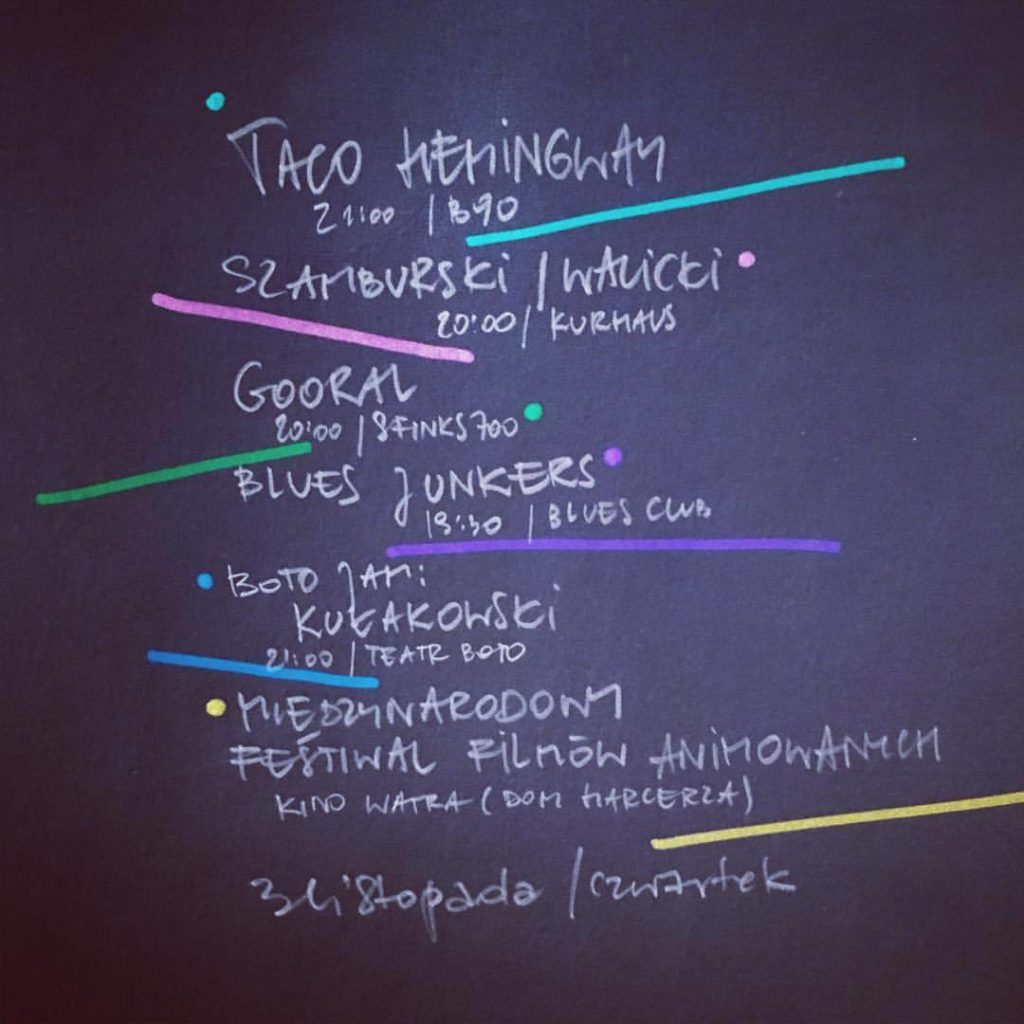 TACO HEMINGWAY
21:00 | B90
SZAMBURSKI / WALICKI
20:00 / KURHAUS
GOORAL
20:00 / SFINKS700
BLUES JUNKERS
19:30 | BLUES CLUB
BOTO JAM:
KUŁAKOWSKI
21:00 | TEATR BOTO
MIĘDZYNARODOWY
FESTIWAL FILMÓW ANIMOWANYCH
KINO WATRA (DOM HARCERZA)
3 listopada / czwartek